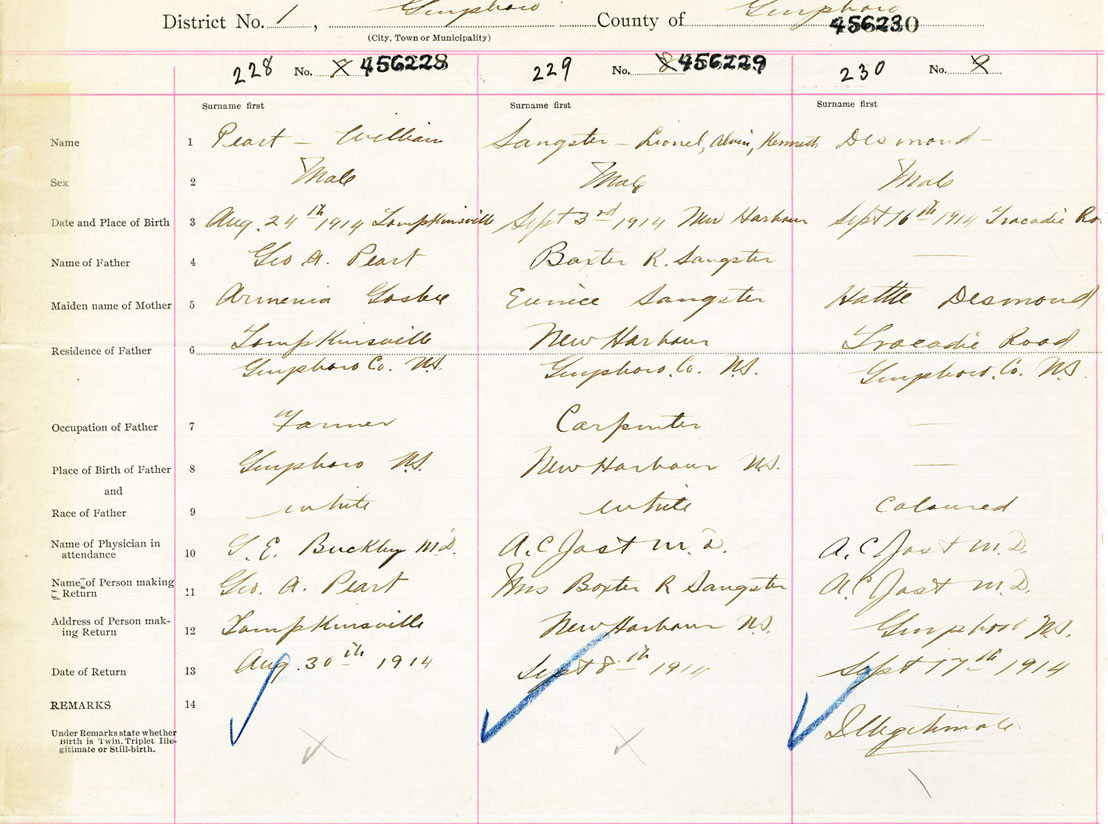 District No. 1, Guysboro County of Guysboro
(City, Town or Municipality)
456230
228 No. 456228 229 No. 8 456229 230 No. 9
Surname first Surname first Surname first
Name 1 Peart - William Sangster - Lionel, Alvin, Kenneth Desmond -
Sex 2 Male Male Male
Date and Place of Birth 3 Aug. 24th 1914 Lompkinsville Sept 3rd 1914 New Harbour Sept 16th 1914 Tracadie Ro.
Name of Father 4 Geo A. Peart Baxter R. Sangster —
Maiden name of Mother 5 Armenia Eunice Sangster Hattie Desmond
Residence of Father 6 Lompkinsville New Harbour Tracadie Road
Guysboro Co. N.S. Guysboro, Co. N.S. Guysboro, Co. N.S.
Occupation of Father 7 Farmer Carpenter —
Place of Birth of Father 8 Guysboro N.S. New Harbour N.S. —
and
Race of Father 9 white white Coloured
Name of Physician in
attendance 10 G. E. Buckley M.D. A. C Jost M. D. A. C Jost M. D.
Name of Person making
Return 11 Geo. A. Peart Mrs Baxter R Sangster A. C Jost M. D.
Address of Person mak-
ing Return 12 Lompkinsville New Harbour N.S. Guysboro N.S.
Date of Return 13 Aug. 30th 1914 Sept 8th 1914 Sept 17th 1914
REMARKS 14 Illegitimate
Under Remarks state whether
Birth is Twin, Triplet Ille-
gitimate or Still-birth.